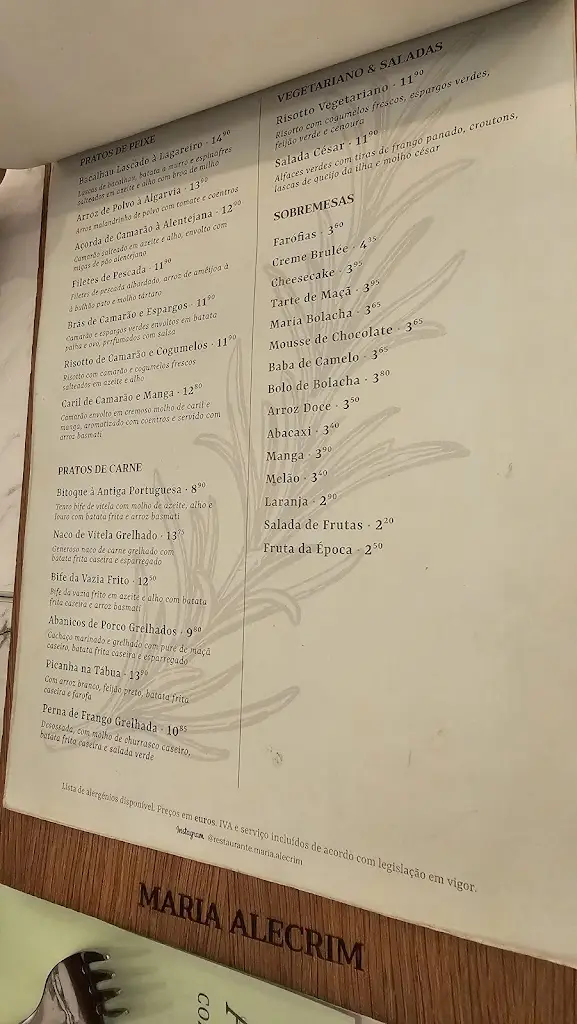 PRATOS DE PEIXE
Bacalhau Lascado à Lagareiro · 14⁹⁰
Lascas de bacalhau, batata a murro e espinafres
salteados em azeite e alho com broa de milho
Arroz de Polvo à Algarvia · 13⁹⁰
Arroz malandrinho de polvo com tomate e coentros
Açorda de Camarão à Alentejana · 12⁹⁰
Camarão salteado em azeite e alho, envolto com
migas de pão alentejano
Filetes de Pescada · 11⁹⁰
Filetes de pescada albardado, arroz de amêijoa à
à bulhão pato e molho tártaro
Brás de Camarão e Espargos · 11⁹⁰
Camarão e espargos verdes envoltos em batata
palha e ovo, perfumados com salsa
Risotto de Camarão e Cogumelos · 11⁹⁰
Risotto com camarão e cogumelos frescos
salteados em azeite e alho
Caril de Camarão e Manga · 12⁸⁰
Camarão envolto em cremoso molho de caril e
manga, aromatizado com coentros e servido com
arroz basmati
PRATOS DE CARNE
Bitoque à Antiga Portuguesa · 8⁹⁰
Tenro bife de vitela com molho de azeite, alho e
louro com batata frita e arroz basmati
Naco de Vitela Grelhado ·
Generoso naco de carne grelhado com
batata frita caseira e esparregado
Bife da Vazia Frito · 12⁵⁰
Bife da vazia frito em azeite e alho com batata
frita caseira e arroz basmati
Abanicos de Porco Grelhados · 9⁸⁰
Cachaço marinado e grelhado com puré de maçã
caseiro, batata frita caseira e esparregado
Picanha na Tábua · 13⁹⁰
Com arroz branco, feijão preto, batata frita
caseira e farofa
Perna de Frango Grelhada · 10⁸⁵
Desossada, com molho de churrasco caseiro,
batata frita caseira e salada verde
VEGETARIANO & SALADAS
Risotto Vegetariano · 11⁹⁰
Risotto com cogumelos frescos, espargos verdes,
feijão verde e cenoura
Salada César · 11⁹⁰
Alfaces verdes com tiras de frango panado, croutons,
lascas de queijo da ilha e molho césar
SOBREMESAS
Farofias · 3⁶⁰
Creme Brulée · 4³⁵
Cheesecake · 3⁹⁵
Tarte de Maçã · 3⁹⁵
Maria Bolacha · 3⁶⁵
Mousse de Chocolate · 3⁶⁵
Baba de Camelo · 3⁶⁵
Bolo de Bolacha · 3⁸⁰
Arroz Doce · 3⁵⁰
Abacaxi · 3⁴⁰
Manga · 3⁹⁰
Melão · 3⁴⁰
Laranja · 2⁹⁰
Salada de Frutas · 2²⁰
Fruta da Época · 2⁵⁰
Lista de alergénios disponível. Preços em euros. IVA e serviço incluídos de acordo com legislação em vigor.
Instagram @restaurante.maria.alecrim
MARIA ALECRIM